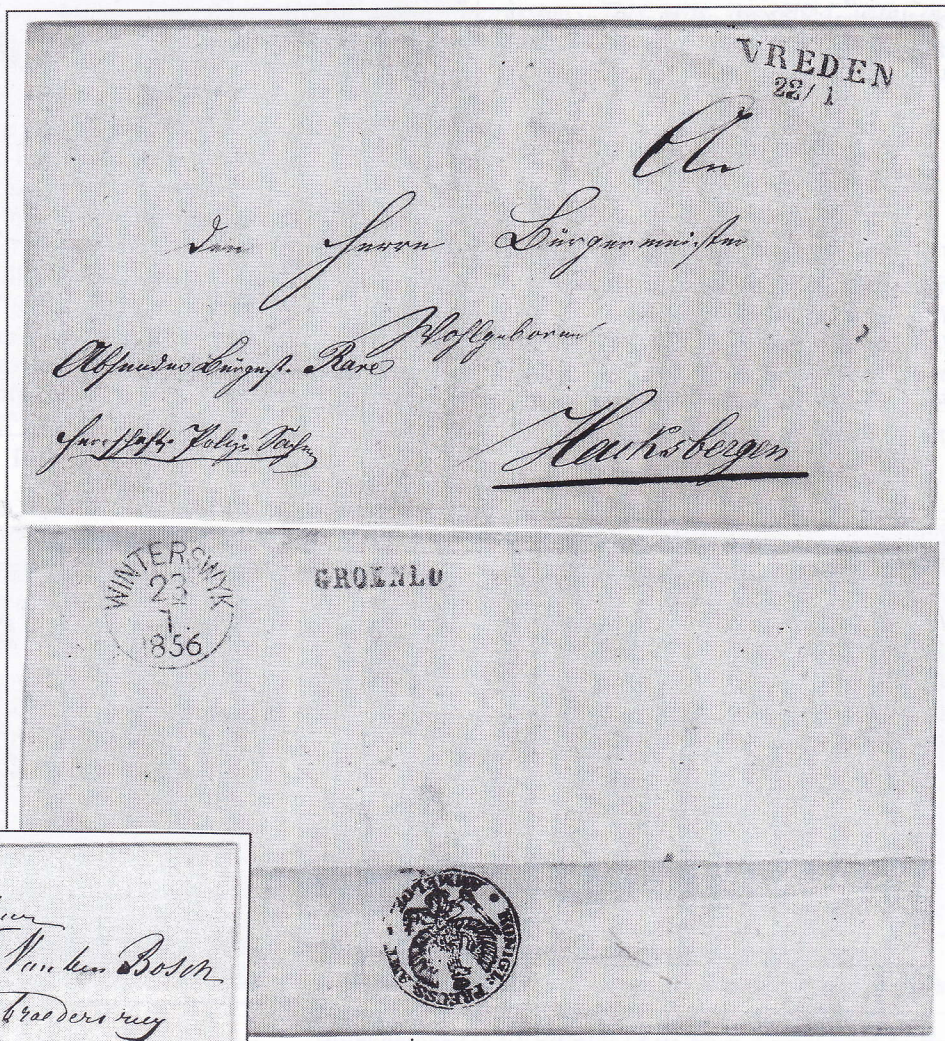 VREDEN
22/1
An
den Herrn Bürgermeister
Wohlgeboren
Absender Bürgst. Rave
Herrschaftl. Polizei Sachen
Hacksbergen
WINTERSWYK
23
1
1856
GROENLO
KÖNIGL: PREUSS. AMT - AMMELOE
Van den Bosch